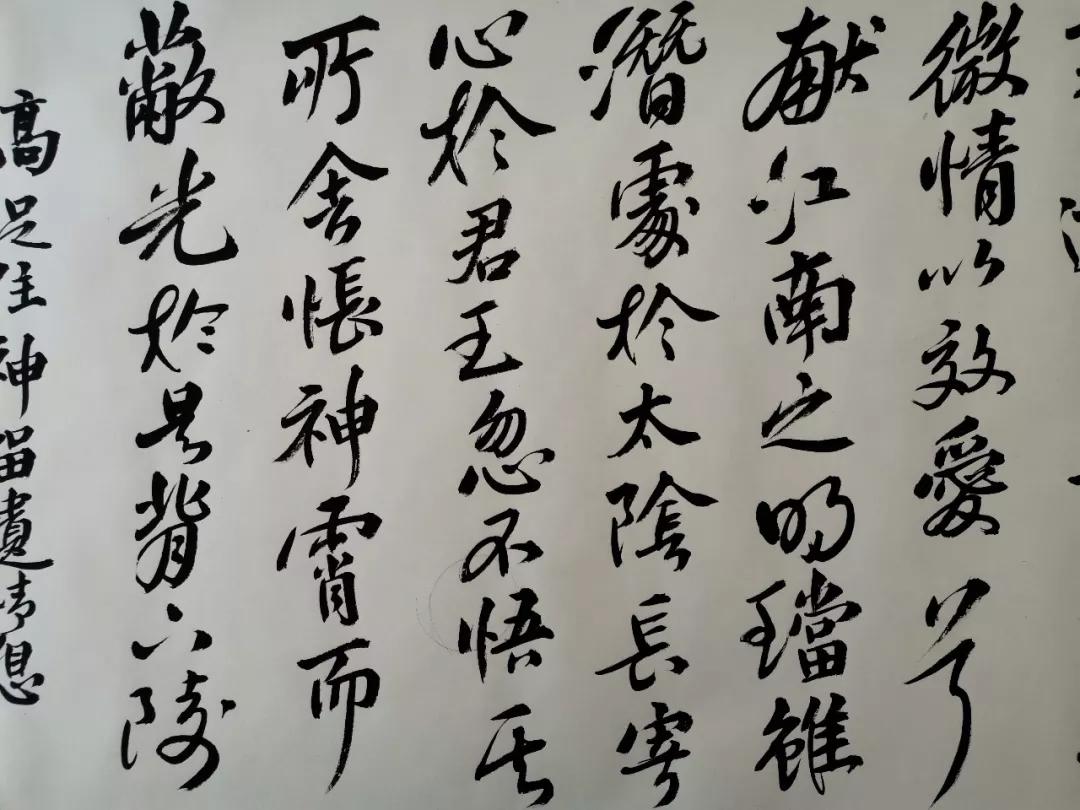 微情以效愛兮
献江南之明璫雖
潛處於太陰長寄
心於君王忽不悟其
所舍悵神霄而
蔽光於是背下陵
高足往神留遺情想